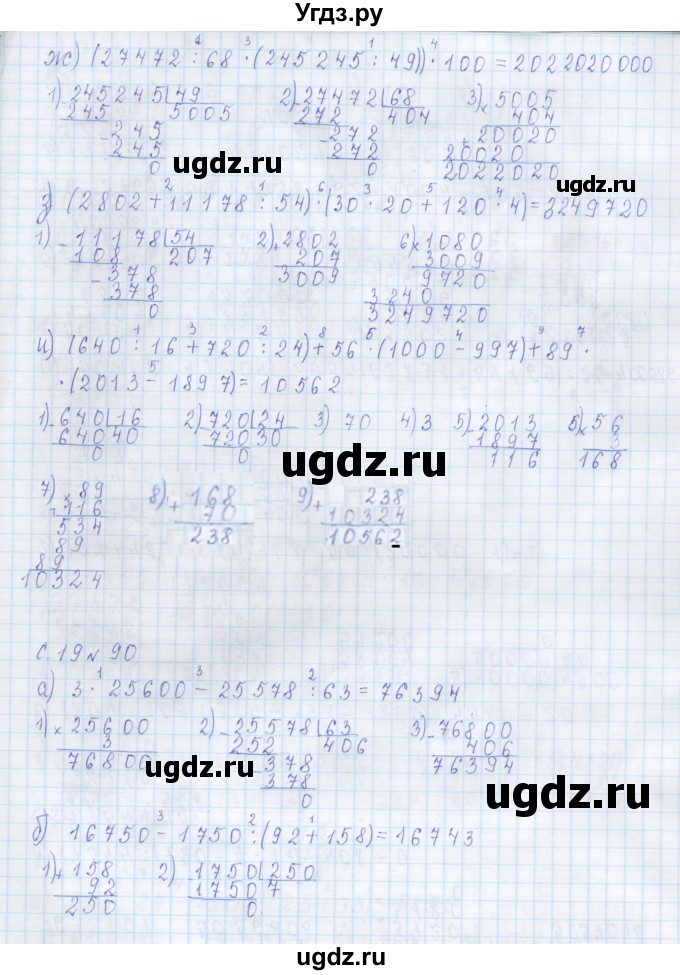 Угдз.ру
ж) (27472 : 68 · (245245 : 49)) · 100 = 2022020000
1) 245245 | 49
245 5005
245
245
0
2) 27472 | 68
272 404
272
272
0
3) × 5005
404
+ 20020
20020
2022020
ugdz.ru
ugdz.ru
ugdz.ru
з) (2802 + 11178 : 54) · (30 · 20 + 120 · 4) = 3249720
1) - 11178 | 54
108 207
- 378
378
0
2) + 2802
207
3009
6) × 1080
3009
9720
3240
3249720
ugdz.ru
ugdz.ru
и) (640 : 16 + 720 : 24) + 56 · (1000 - 997) + 89 ·
· (2013 - 1897) = 10562
1) - 640 | 16
640 40
0
2) - 720 | 24
720 30
0
3) 70
4) 3
5) - 2013
1897
116
5) × 56
3
168
ugdz.ru
7) × 89
116
534
89
89
10324
8) + 168
70
238
9) + 238
10324
10562
ugdz.ru
с. 19 № 90
а) 3 · 25600 - 25578 : 63 = 76394
1) × 25600
3
76800
2) - 25578 | 63
252 406
- 378
378
0
3) - 76800
406
76394
ugdz.ru
ugdz.ru
б) 16750 - 1750 : (92 + 158) = 16743
1) + 158
92
250
2) 1750 | 250
1750 7
0
ugdz.ru
ugdz.ru
Угдз.ру